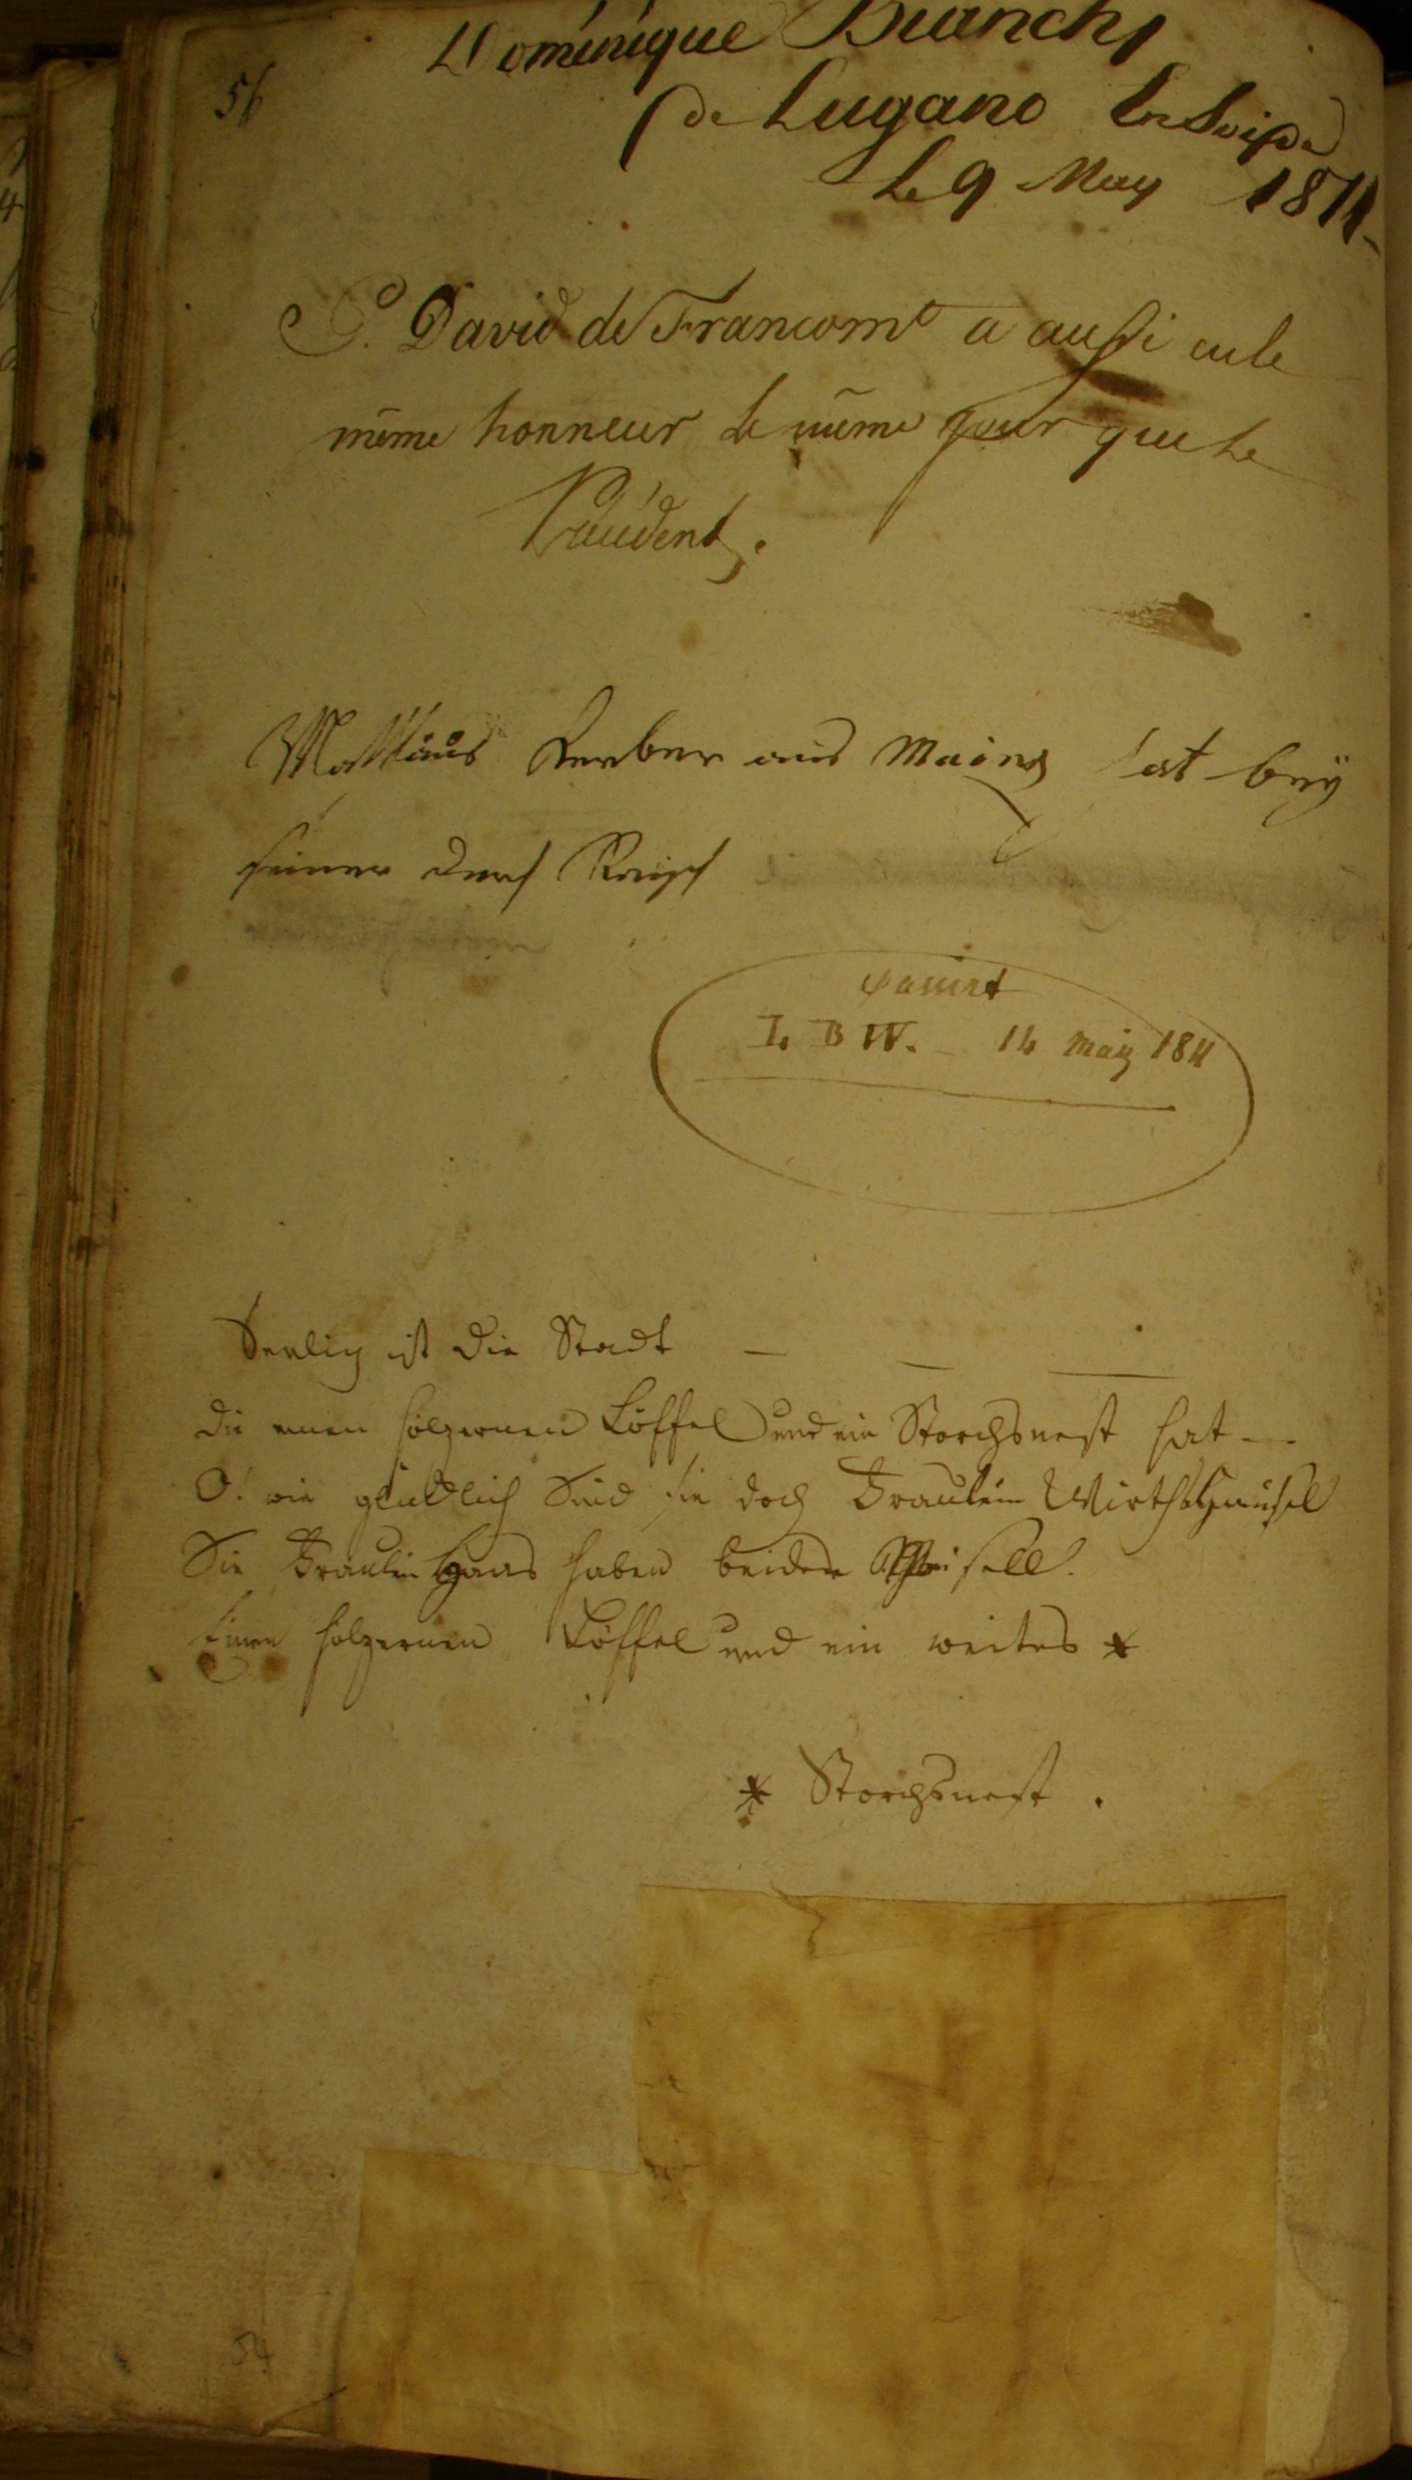 56
Dominique Bianchi
de Lugano en Suisse
Le 9 May 1811
P. David de Francomt a aussi eu le
même honneur le même jour que le
Précédent.
Matthäus Ferber aus Mainz hat bey
seiner durch Reise
passirt
I. B W. 14 May 1811
Seelig ist die Stadt
die einen hölzernen Löffel und ein Storchsnest hat
O! wie glücklich Sind sie doch Fraulein
Sie Fraulein Haas haben beide
Einen holzernen Löffel und ein weites *
* Storchsnest.
54